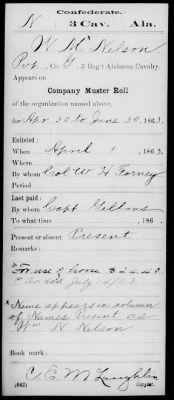 Confederate.
N 3 Cav. Ala.
W. Mc Nelson
Pvt, Co. G, 3 Reg't Alabama Cavalry.
Appears on
Company Muster Roll
of the organization named above,
for Apr 30 to June 30, 1863.
Enlisted:
When April 1, 186
Where
By whom Col W. H. Forney
Period
Last paid:
By whom Capt
To what time , 186 .
Present or absent Present
Remarks:
For use of horse $24.40
July
* Name appears in column
of Names Present as
Wm N. Nelson
Book mark:
C. E. McLaughlin
(642) Copyist.